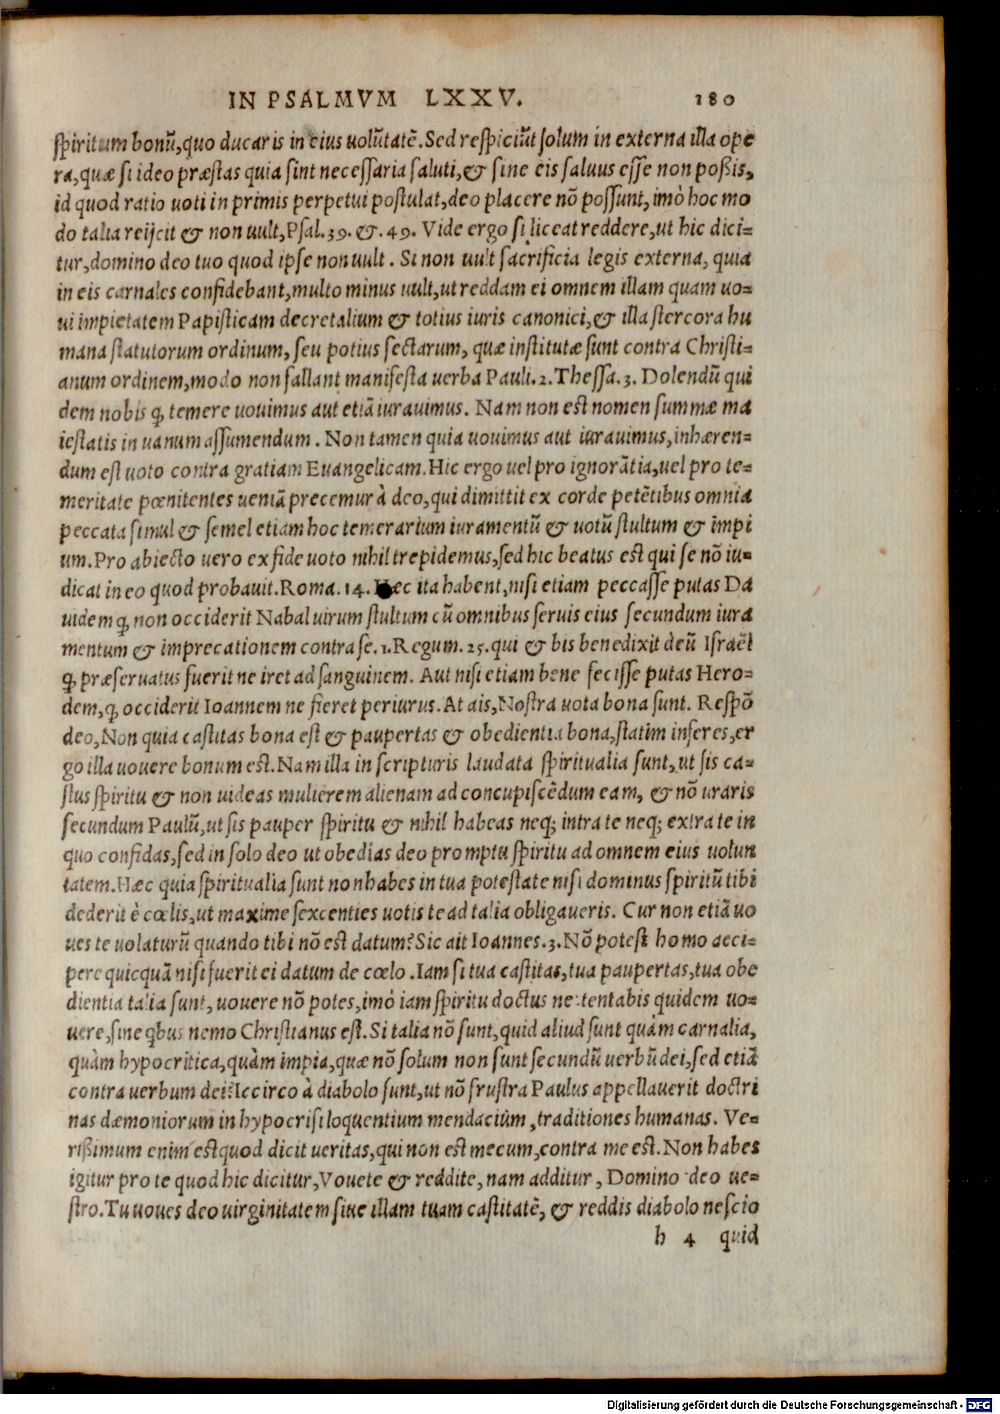 IN PSALMVM LXXV. 180
spiritum bonũ,quo ducaris in eius uolũtatẽ.Sed respiciũt solum in externa illa ope
ra,quæ si ideo præstas quia sint necessaria saluti,& sine eis saluus esse non poßis,
id quod ratio uoti in primis perpetui postulat,deo placere nõ possunt,imò hoc mo
do talia reijcit & non uult,Psal.39.&.49. Vide ergo si liceat reddere,ut hic dici-
tur,domino deo tuo quod ipse non uult. Si non uult sacrificia legis externa, quia
in eis carnales confidebant,multo minus uult,ut reddam ei omnem illam quam uo-
ui impietatem Papisticam decretalium & totius iuris canonici,& illa stercora hu
mana statutorum ordinum, seu potius sectarum, quæ institutæ sunt contra Christi-
anum ordinem,modo non fallant manifesta uerba Pauli.2.Thessa.3. Dolendũ qui
dem nobis q, temere uouimus aut etiã iurauimus. Nam non est nomen summæ ma
iestatis in uanum assumendum. Non tamen quia uouimus aut iurauimus,inhæren-
dum est uoto contra gratiam Euangelicam.Hic ergo uel pro ignorãtia,uel pro te-
meritate pœnitentes ueniã precemur à deo,qui dimittit ex corde petẽtibus omnia
peccata simul & semel etiam hoc temerarium iuramentũ & uotũ stultum & impi
um.Pro abiecto uero ex fide uoto nihil trepidemus,sed hic beatus est qui se nõ iu-
dicat in eo quod probauit.Roma.14.Hæc ita habent,nisi etiam peccasse putas Da
uidem q, non occiderit Nabal uirum stultum cũ omnibus seruis eius secundum iura
mentum & imprecationem contra se.1.Regum.25.qui & bis benedixit deũ Israël
q, præseruatus fuerit ne iret ad sanguinem. Aut nisi etiam bene fecisse putas Hero-
dem,q, occiderit Ioannem ne fieret periurus.At ais,Nostra uota bona sunt. Respõ
deo,Non quia castitas bona est & paupertas & obedientia bona,statim inferes,er
go illa uouere bonum est.Nam illa in scripturis laudata spiritualia sunt,ut sis ca-
stus spiritu & non uideas mulierem alienam ad concupiscẽdum eam, & nõ uraris
secundum Paulũ,ut sis pauper spiritu & nihil habeas neq; intra te neq; extra te in
quo confidas,sed in solo deo ut obedias deo promptu spiritu ad omnem eius uolun
tatem.Hæc quia spiritualia sunt non habes in tua potestate nisi dominus spiritũ tibi
dederit è cœlis,ut maxime sexcenties uotis te ad talia obligaueris. Cur non etiã uo
ues te uolaturũ quando tibi nõ est datum?Sic ait Ioannes.3.Nõ potest homo acci-
pere quicquã nisi fuerit ei datum de cœlo.Iam si tua castitas,tua paupertas,tua obe
dientia talia sunt, uouere nõ potes,imò iam spiritu doctus ne tentabis quidem uo-
uere,sine qbus nemo Christianus est.Si talia nõ sunt,quid aliud sunt quàm carnalia,
quàm hypocritica,quàm impia,quæ nõ solum non sunt secundũ uerbũ dei,sed etiã
contra uerbum dei?Iccirco à diabolo sunt,ut nõ frustra Paulus appellauerit doctri
nas dæmoniorum in hypocrisi loquentium mendacium,traditiones humanas. Ve-
rißimum enim est quod dicit ueritas,qui non est mecum,contra me est.Non habes
igitur pro te quod hic dicitur,Vouete & reddite,nam additur, Domino deo ue-
stro.Tu uoues deo uirginitatem siue illam tuam castitatẽ, & reddis diabolo nescio
h 4 quid
Digitalisierung gefördert durch die Deutsche Forschungsgemeinschaft - DFG